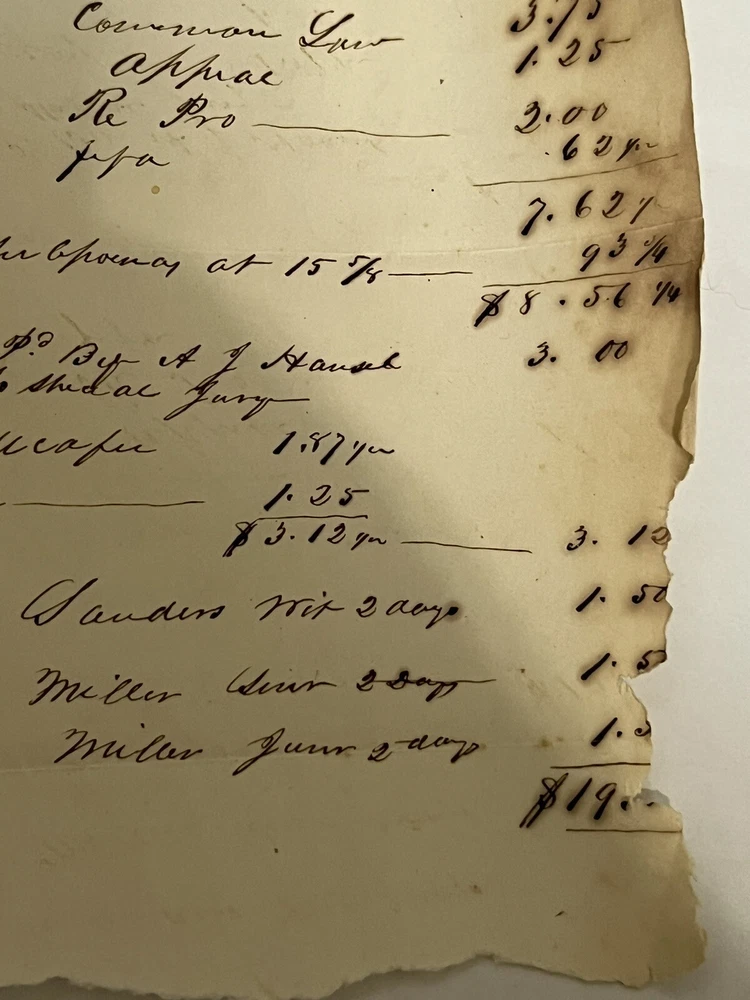 Common Law 3.75
Appeal 1.25
Re Pro — 2.00
fifa .62 ½
7.62 ½
Subpoenas at 15 5/8 — 93 3/4
$8.56 1/4
Pd By A J Hansel 3.00
Jury
1.87 ½
— 1.25
$3.12 ½ — 3.12
Sanders Wit 2 days 1.50
Miller Senr 2 Days 1.5
Miller Junr 2 days 1.5
$19.